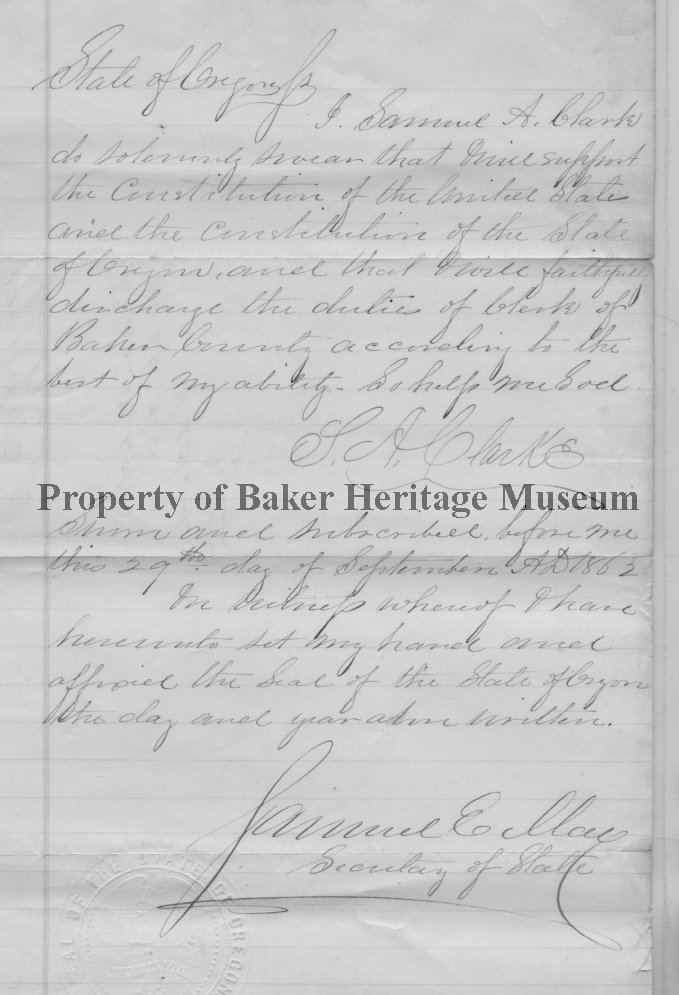 State of Oregon ss
I. Samuel A. Clark
do solemnly swear that I will support
the Constitution of the United State
and the Constitution of the State
of Oregon, and that I will faithfully
discharge the duties of Clerk of
Baker County according to the
best of my ability. So help me God.
S. A. Clarke
Property of Baker Heritage Museum
Sworn and subscribed before me
this 29th day of September AD 1862
In witness whereof I have
hereunto set my hand and
affixed the Seal of the State of Oregon
the day and year above written.
Samuel E. May
Secretary of State
SEAL OF THE STATE OF OREGON